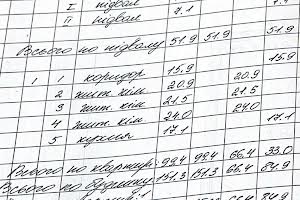 I підвал
II підвал 7.1
Всього по підвалу 51.9 51.9 51.9
1 1 коридор 15.9 15.9
2 жит. кім 20.9 20.9
3 жит. кім 21.5 21.5
4 жит. кім 24.0 24.0
5 кухня 17.1 17.1
Всього по квартирі: 99.4 99.4 66.4 33.0
Всього по будинку 151.3 151.3 66.4 84.9